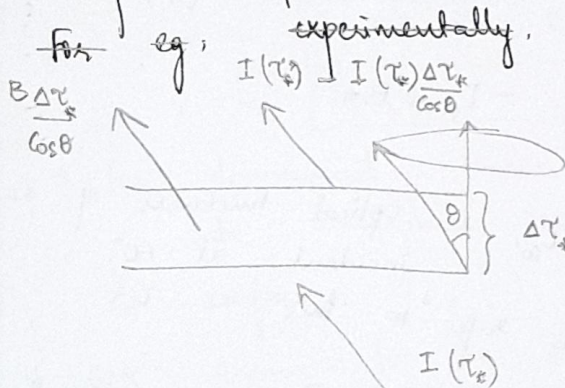 For eg. experimentally.
I(τ*) - I(τ*) Δτ*/Cosθ
B Δτ*/Cosθ
θ
Δτ*
I(τ*)